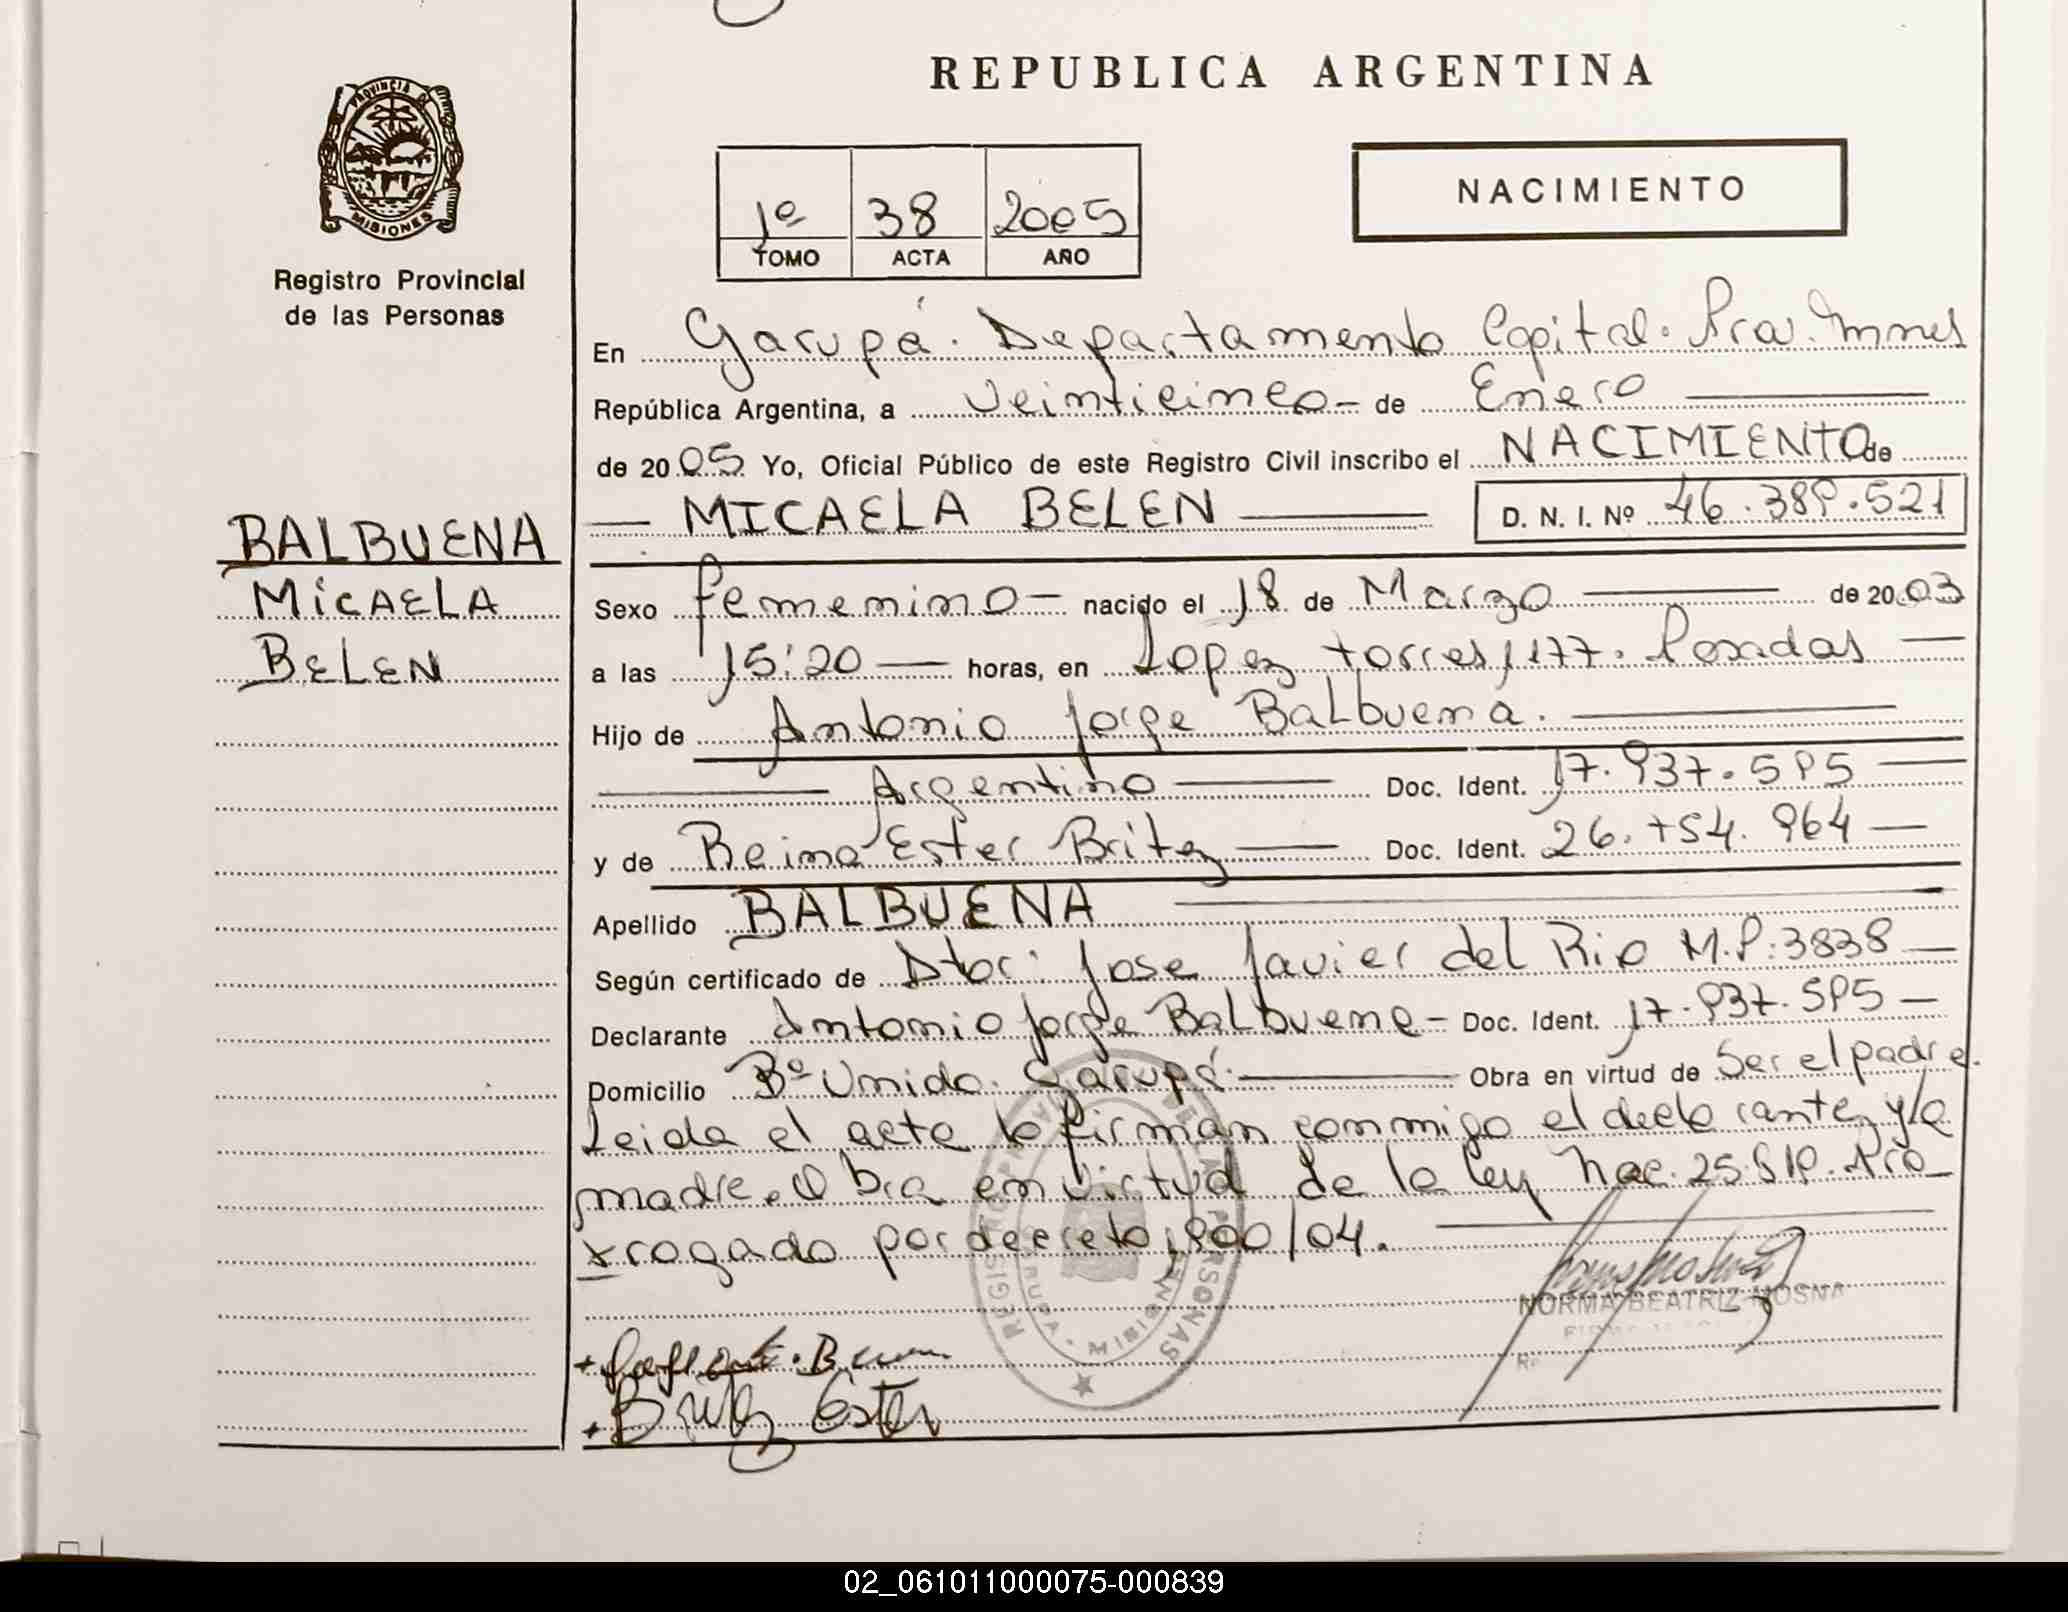 REPUBLICA ARGENTINA
PROVINCIA DE
MISIONES
Registro Provincial
de las Personas
1º 38 2005
TOMO ACTA AÑO
NACIMIENTO
En Garupá. Departamento Capital. Pcia. Mnes
República Argentina, a Veinticinco - de Enero
de 2005 Yo, Oficial Público de este Registro Civil inscribo el NACIMIENTO de
MICAELA BELEN D. N. I. Nº 46.389.521
BALBUENA
MICAELA
BELEN
Sexo femenino - nacido el 18 de Marzo de 2003
a las 15:20 horas, en Lopez torres 1177. Posadas
Hijo de Antonio Jorge Balbuena.
Argentino Doc. Ident. 17.937.595
y de Reina Ester Britez Doc. Ident. 26.754.964
Apellido BALBUENA
Según certificado de Dtor: Jose Javier del Rio M.P: 3838
Declarante Antonio Jorge Balbuena - Doc. Ident. 17.937.595
Domicilio Bº Unido. Garupá. Obra en virtud de Ser el padre.
Leida el acta lo firman conmigo el declarante y la
madre. O bra en virtud de la ley Nac. 25.819. Pro
rrogado por decreto 1900/04.
NORMA BEATRIZ MOSNA
Britez Ester
02_061011000075-000839